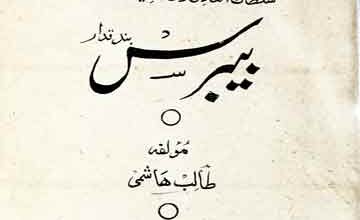 بندقدار
بیبرس
مؤلفہ
طالب ہاشمی